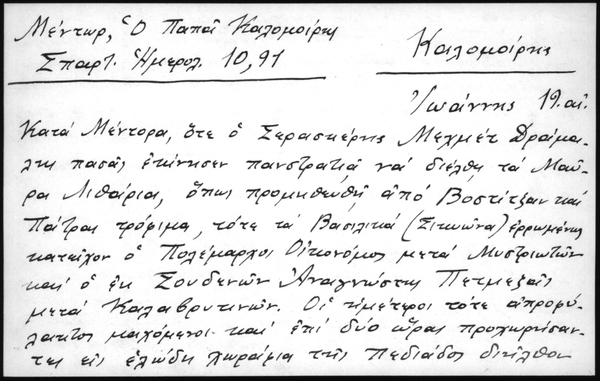 Μέντωρ, Ὁ Παπᾶ Καλομοίρης
Σπαρτ. Ἡμερολ. 10,91
Καλομοίρης
Ἰωάννης 19. αἰ.
Κατά Μέντορα, ὅτε ὁ Σερασκέρης Μεχμέτ Δράμα-
λης πασᾶς ἐκίνησεν πανστρατιᾷ νά διέλθῃ τά Μαῦ-
ρα Λιθάρια, ὅπως προμηθευθῇ ἀπό Βοστίτζαν καί
Πάτρας τρόφιμα, τότε τά Βασιλικά (Σικυῶνα) ἐρρωμένως
κατεῖχον ὁ Πολέμαρχος Οἰκονόμος μετά Μυστριωτῶν
καί ὁ ἐκ Σουδενῶν Ἀναγνώστης Πετμεζᾶς
μετά Καλαβρυτινῶν. Οἱ ἡμέτεροι τότε ἀπροφύ-
λακτοι μαχόμενοι καί ἐπί δύο ὥρας προχωρήσαν-
τες εἰς ἑλώδη χωράφια τῆς Πεδιάδος διῆλθον